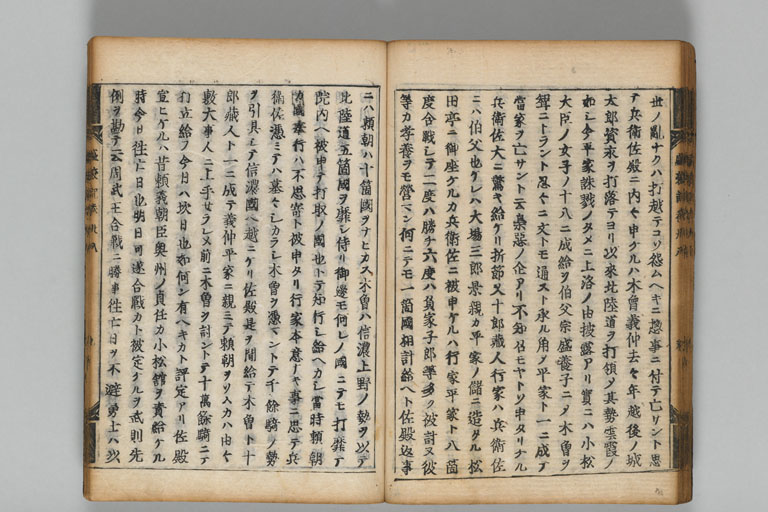 世ノ亂ナクハ打越テコソ怨ムヘキニ惣事ニ付テ亡サント思
テ兵衛佐殿ニ内々申ケルハ木曽義仲去々年越後ノ城
太郎資永ヲ打落テヨリ以來北陸道ヲ打領メ其勢雲霞ノ
如シ今平家誅戮ノタメニ上洛ノ由披露アリ實ニハ小松
大臣ノ女子ノ十八ニ成給ヲ伯父宗盛養子ニメ木曽ヲ
聟ニトラント忍々ニ文トモ通スト承ル角メ平家ト一ニ成テ
當家ヲ亡サント云梟惡ノ企アリ不知召モヤトソ申タリケル
兵衛佐大ニ驚キ給ケリ折節又十郎藏人行家ハ兵衛佐
ニハ伯父也ケレハ大場三郎景親カ平家ノ儲ニ造タル松
田亭ニ御座ケルカ兵衛佐ニ被申ケルハ行家平家ト八箇
度合戰シテ二度ハ勝チ六度ハ負家子郎等多ク被討又彼
等カ孝養ヲモ營マン何ニテモ一箇國相計給ヘト佐殿返事
ニハ頼朝ハ十箇國ヲナヒカス木曽ハ信濃上野ノ勢ヲ以テ
北陸道五箇國ヲ靡シ侍リ御邊モ何レノ國ニテモ打靡テ
院内ヘ被申テ打取ノ國也トテ知行シ給ヘカシ當時頼朝
カ國奉行ハ不思寄ト被申タリ行家本意ナキ事ニ思テ兵
衛佐憑ミテハ墓々シカラシ木曽ヲ憑マントテ千餘騎ノ勢
ヲ引具シテ信濃國ヘ越ニケリ佐殿是ヲ聞給テ木曽ト十
郎藏人ト一ニ成テ義仲平家ニ親ミテ頼朝ヲソムカハ由々
敷大事人ニ上手セラレヌ前ニ木曽ヲ討ントテ十萬餘騎ニテ
打立給フ今日ハ坎日也如何ン有ヘキカト評定アリ佐殿
宣ヒケルハ昔頼義朝臣奥州ノ貞任カ小松館ヲ責給ケル
時今日往亡日也明日可遂合戰カト被定ケルヲ武則先
例ヲ勘テ云周武王合戰ニ勝事往亡日ヲ不避勇士ハ以